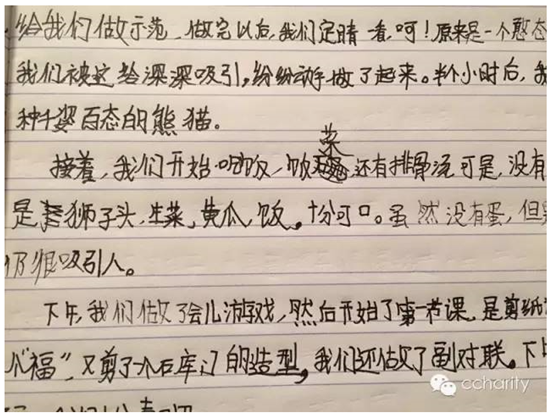 给我们做示范，做完以后，我们定睛一看，呵！原来是一个憨态
我们被这给深深吸引，纷纷动手做了起来。半个小时后，我
种千姿百态的熊猫。
接着，我们开始吃饭，饭菜还有排骨汤可是，没有
是狮子头，生菜，黄瓜，饭，十分可口。虽然没有蛋，但
仍很吸引人。
下午，我们做了会儿游戏，然后开始了第一节课，是剪纸
个“福”，又剪了一个石库门的造型，我们还做了副对联。下
ccharity